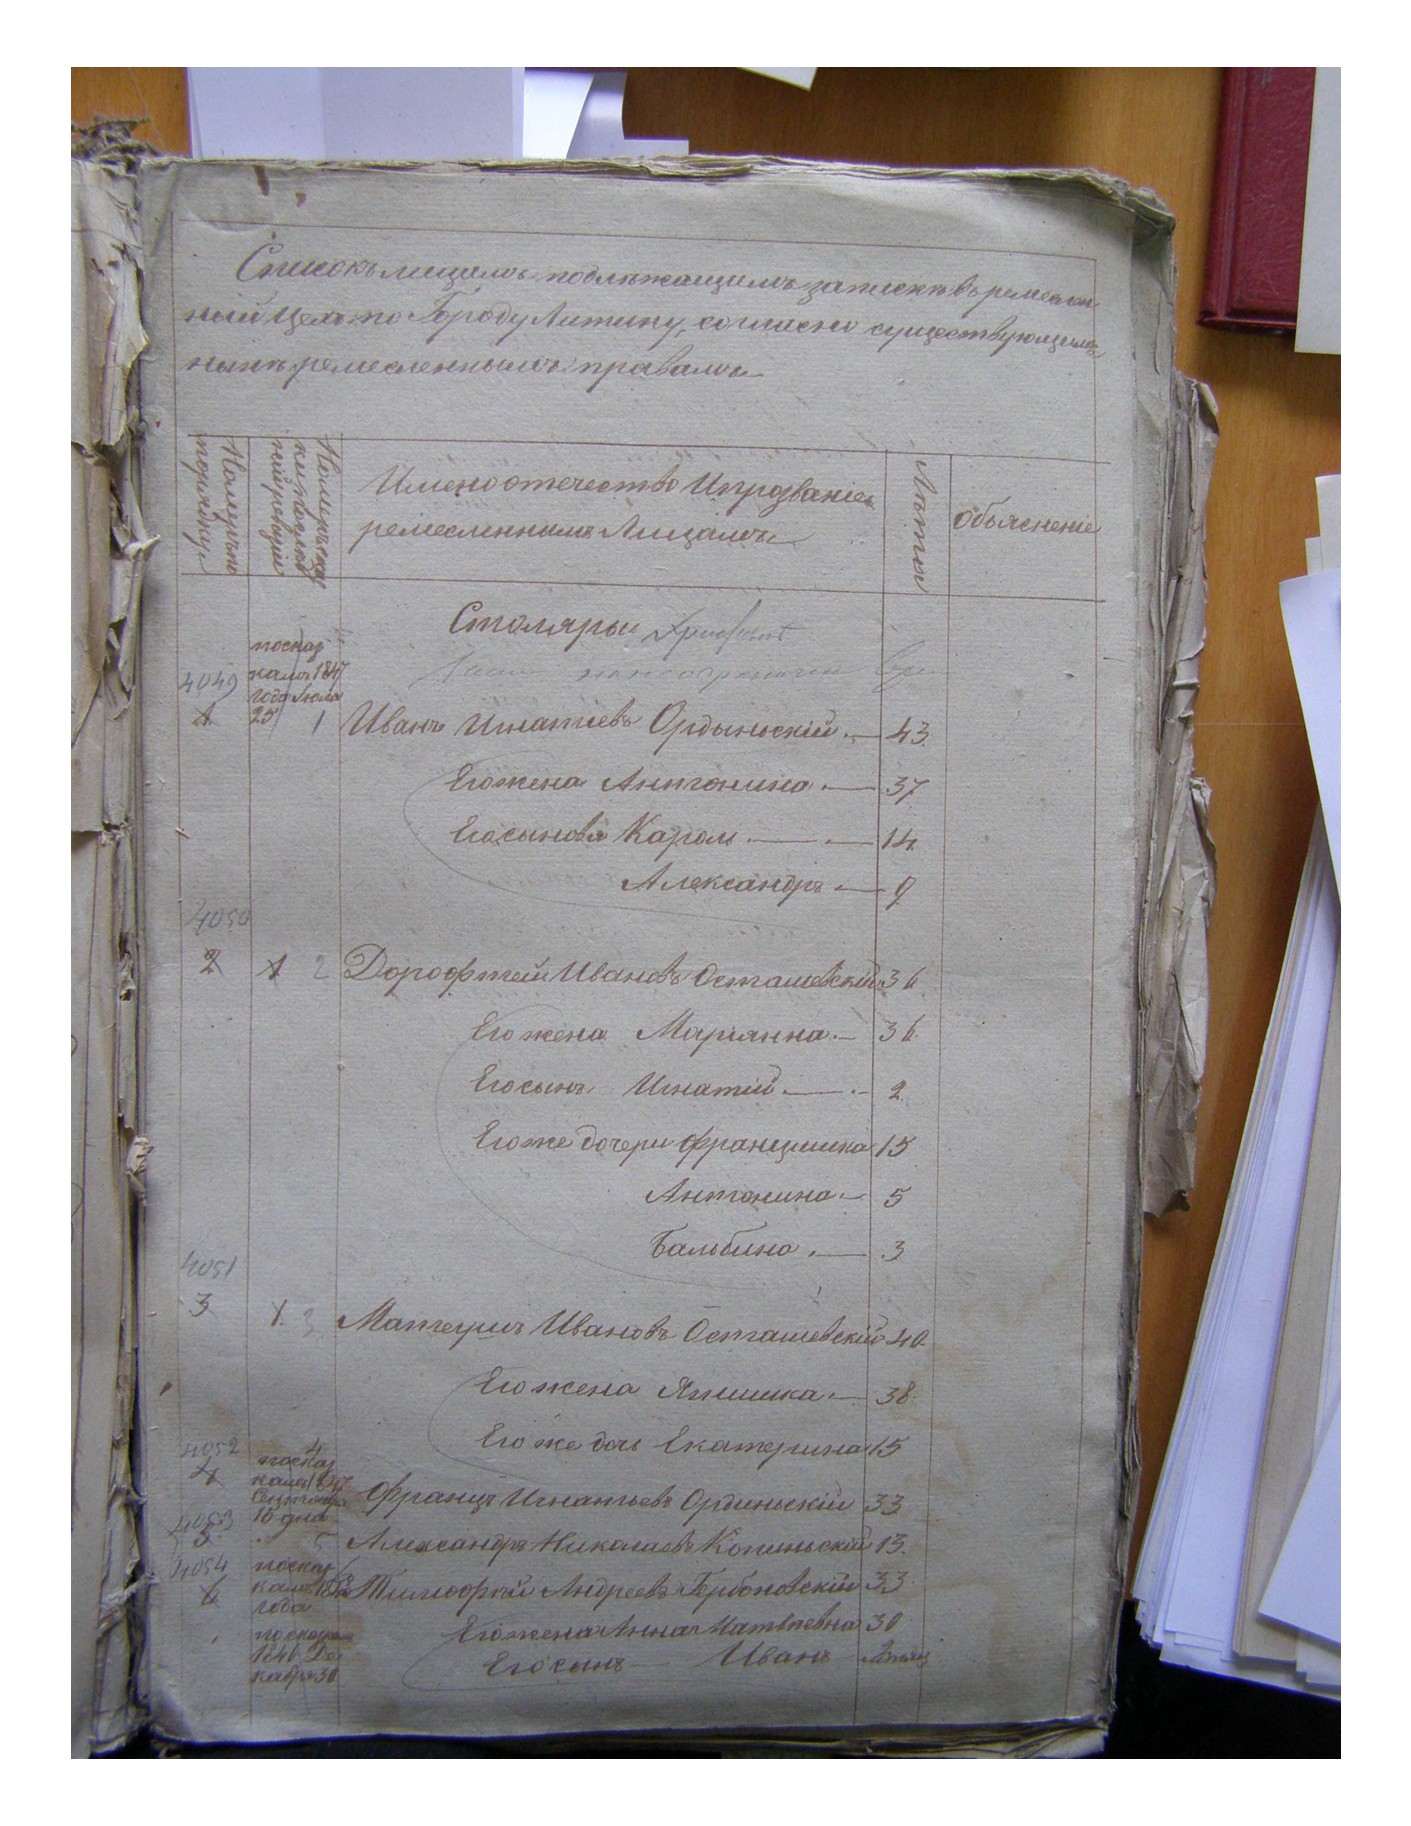 Списокъ лицамъ подлежащимъ запискѣ въ ремеслен
ный Цехъ по Городу Литину, согласно существующимъ
ремесленнымъ правамъ
Номеръ по
порядку
Номеръ
ревизіи
Имено отечество И прозваніе
ремесленнымъ Лицамъ
Лѣты
Объясненіе
Столяры
4049
1
по
1847
года Іюля
25
1
Иванъ Игнатіевъ Ордыньскій 43
Его жена Антонина 37
Его сыновя Кароль 14
Александръ 9
4050
2
1
2
Дорофтей Ивановъ Осташевскій 36
Его жена Маріянна 36
Его сынъ Игнатій 2
Его же дочери Францишка 15
Антонина 5
Бальбина 3
4051
3
1
3
Матеушъ Ивановъ Осташевскій 40
Его жена 38
Его же дочь Екатерина 15
4052
4
4
по
1847
15 дня
Францъ Игнатьевъ Ординьскій 33
4053
5
5
Александръ Николаевъ Копиньскій 13
4054
6
года
Тимофей Андреевъ Гербановскій 33
Его жена Анна Матвѣевна 30
1840 Де
кабря 30
Его сынъ Иванъ